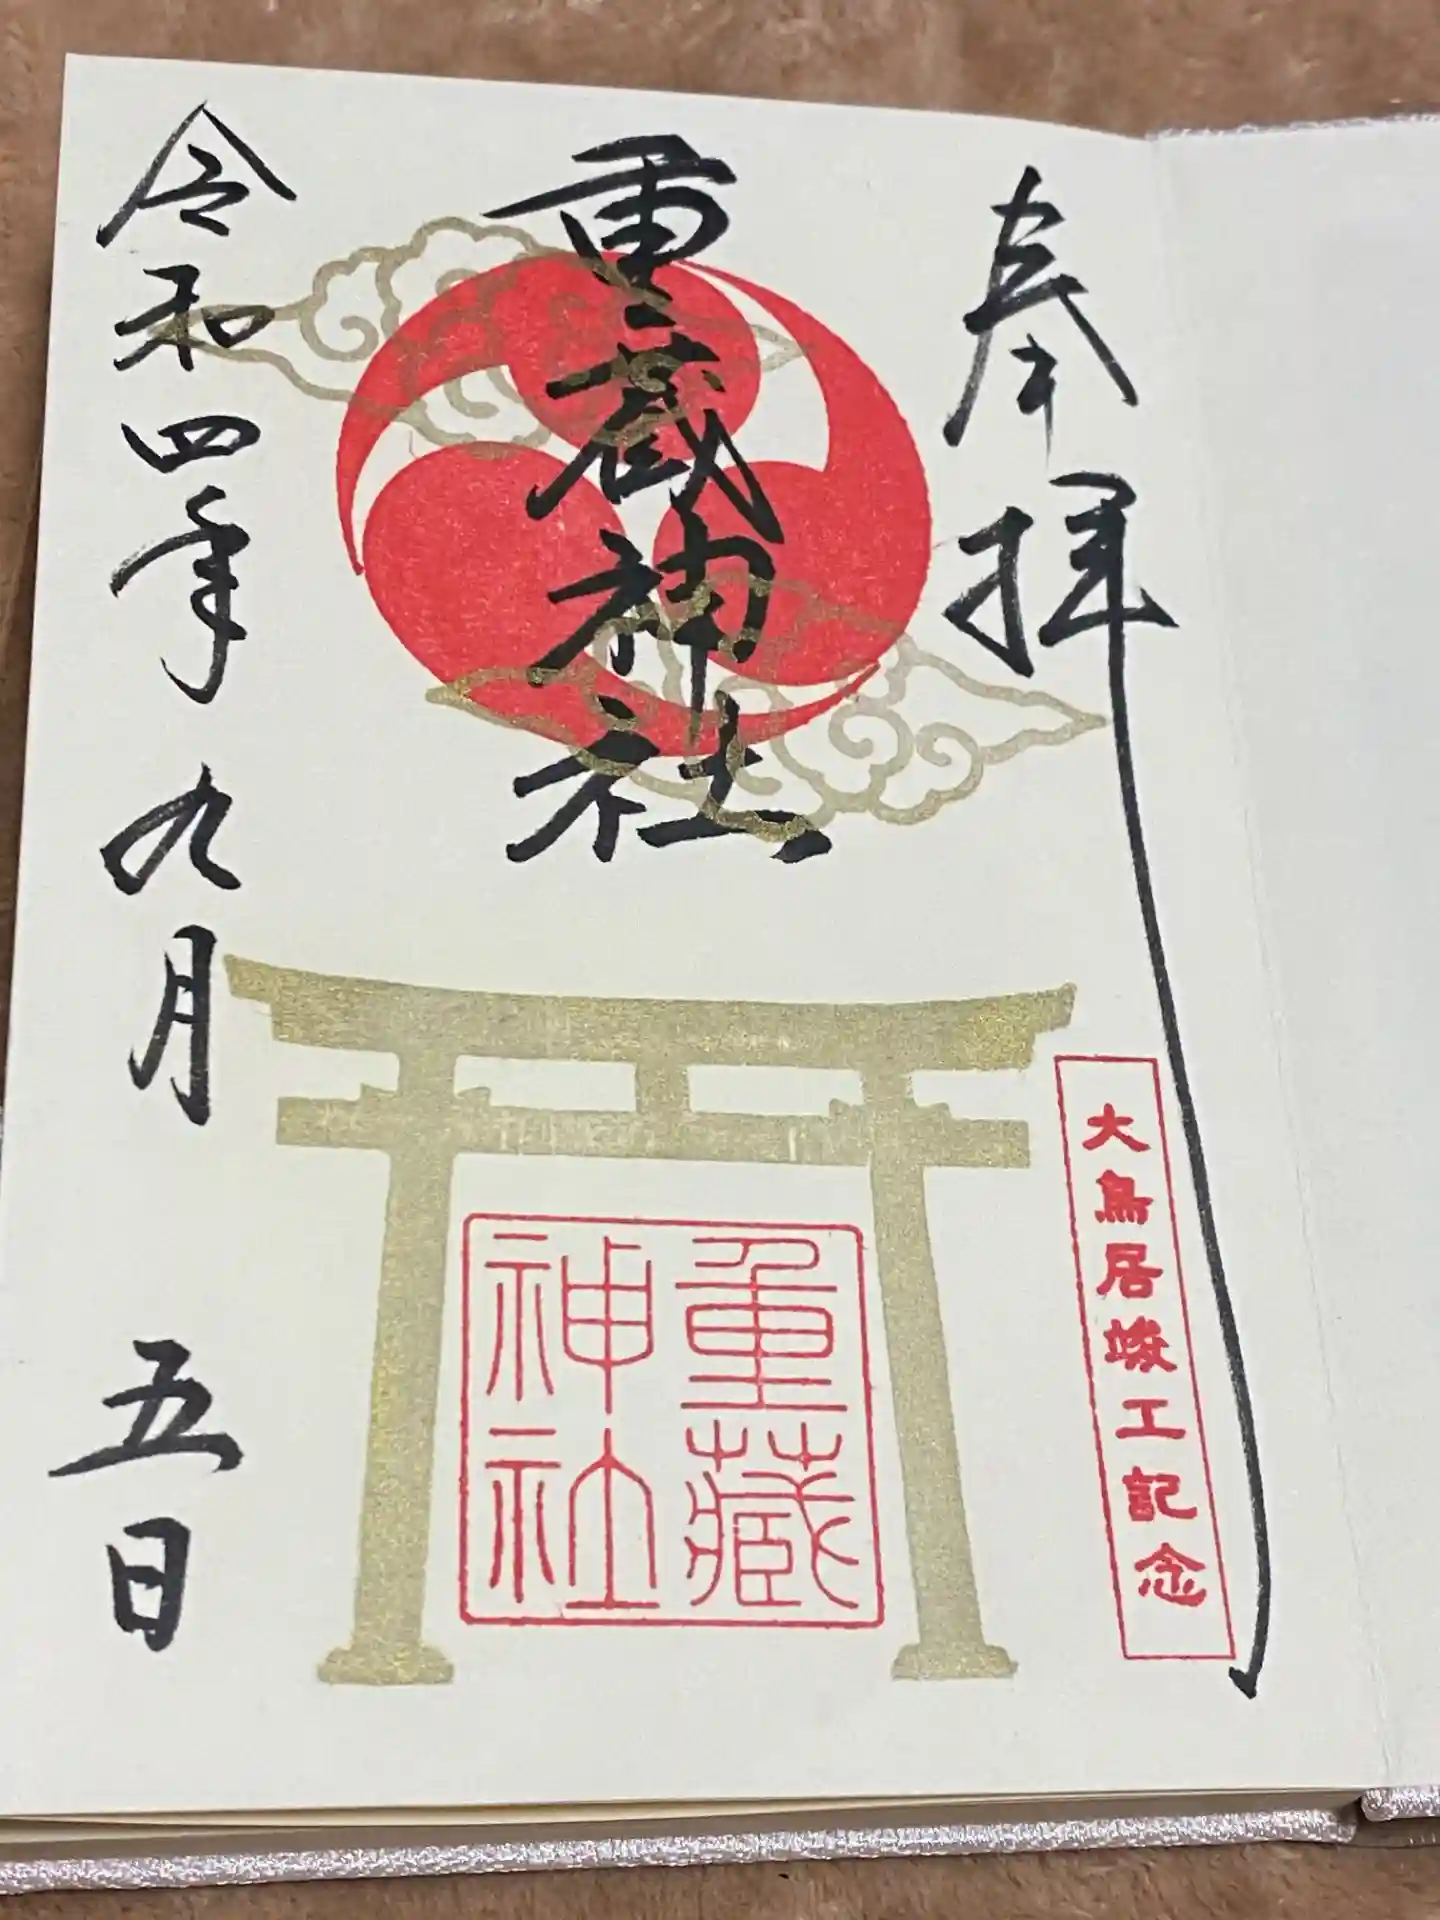 奉拝
大鳥居竣工記念
重蔵神社
重藏
神社
令和四年九月五日